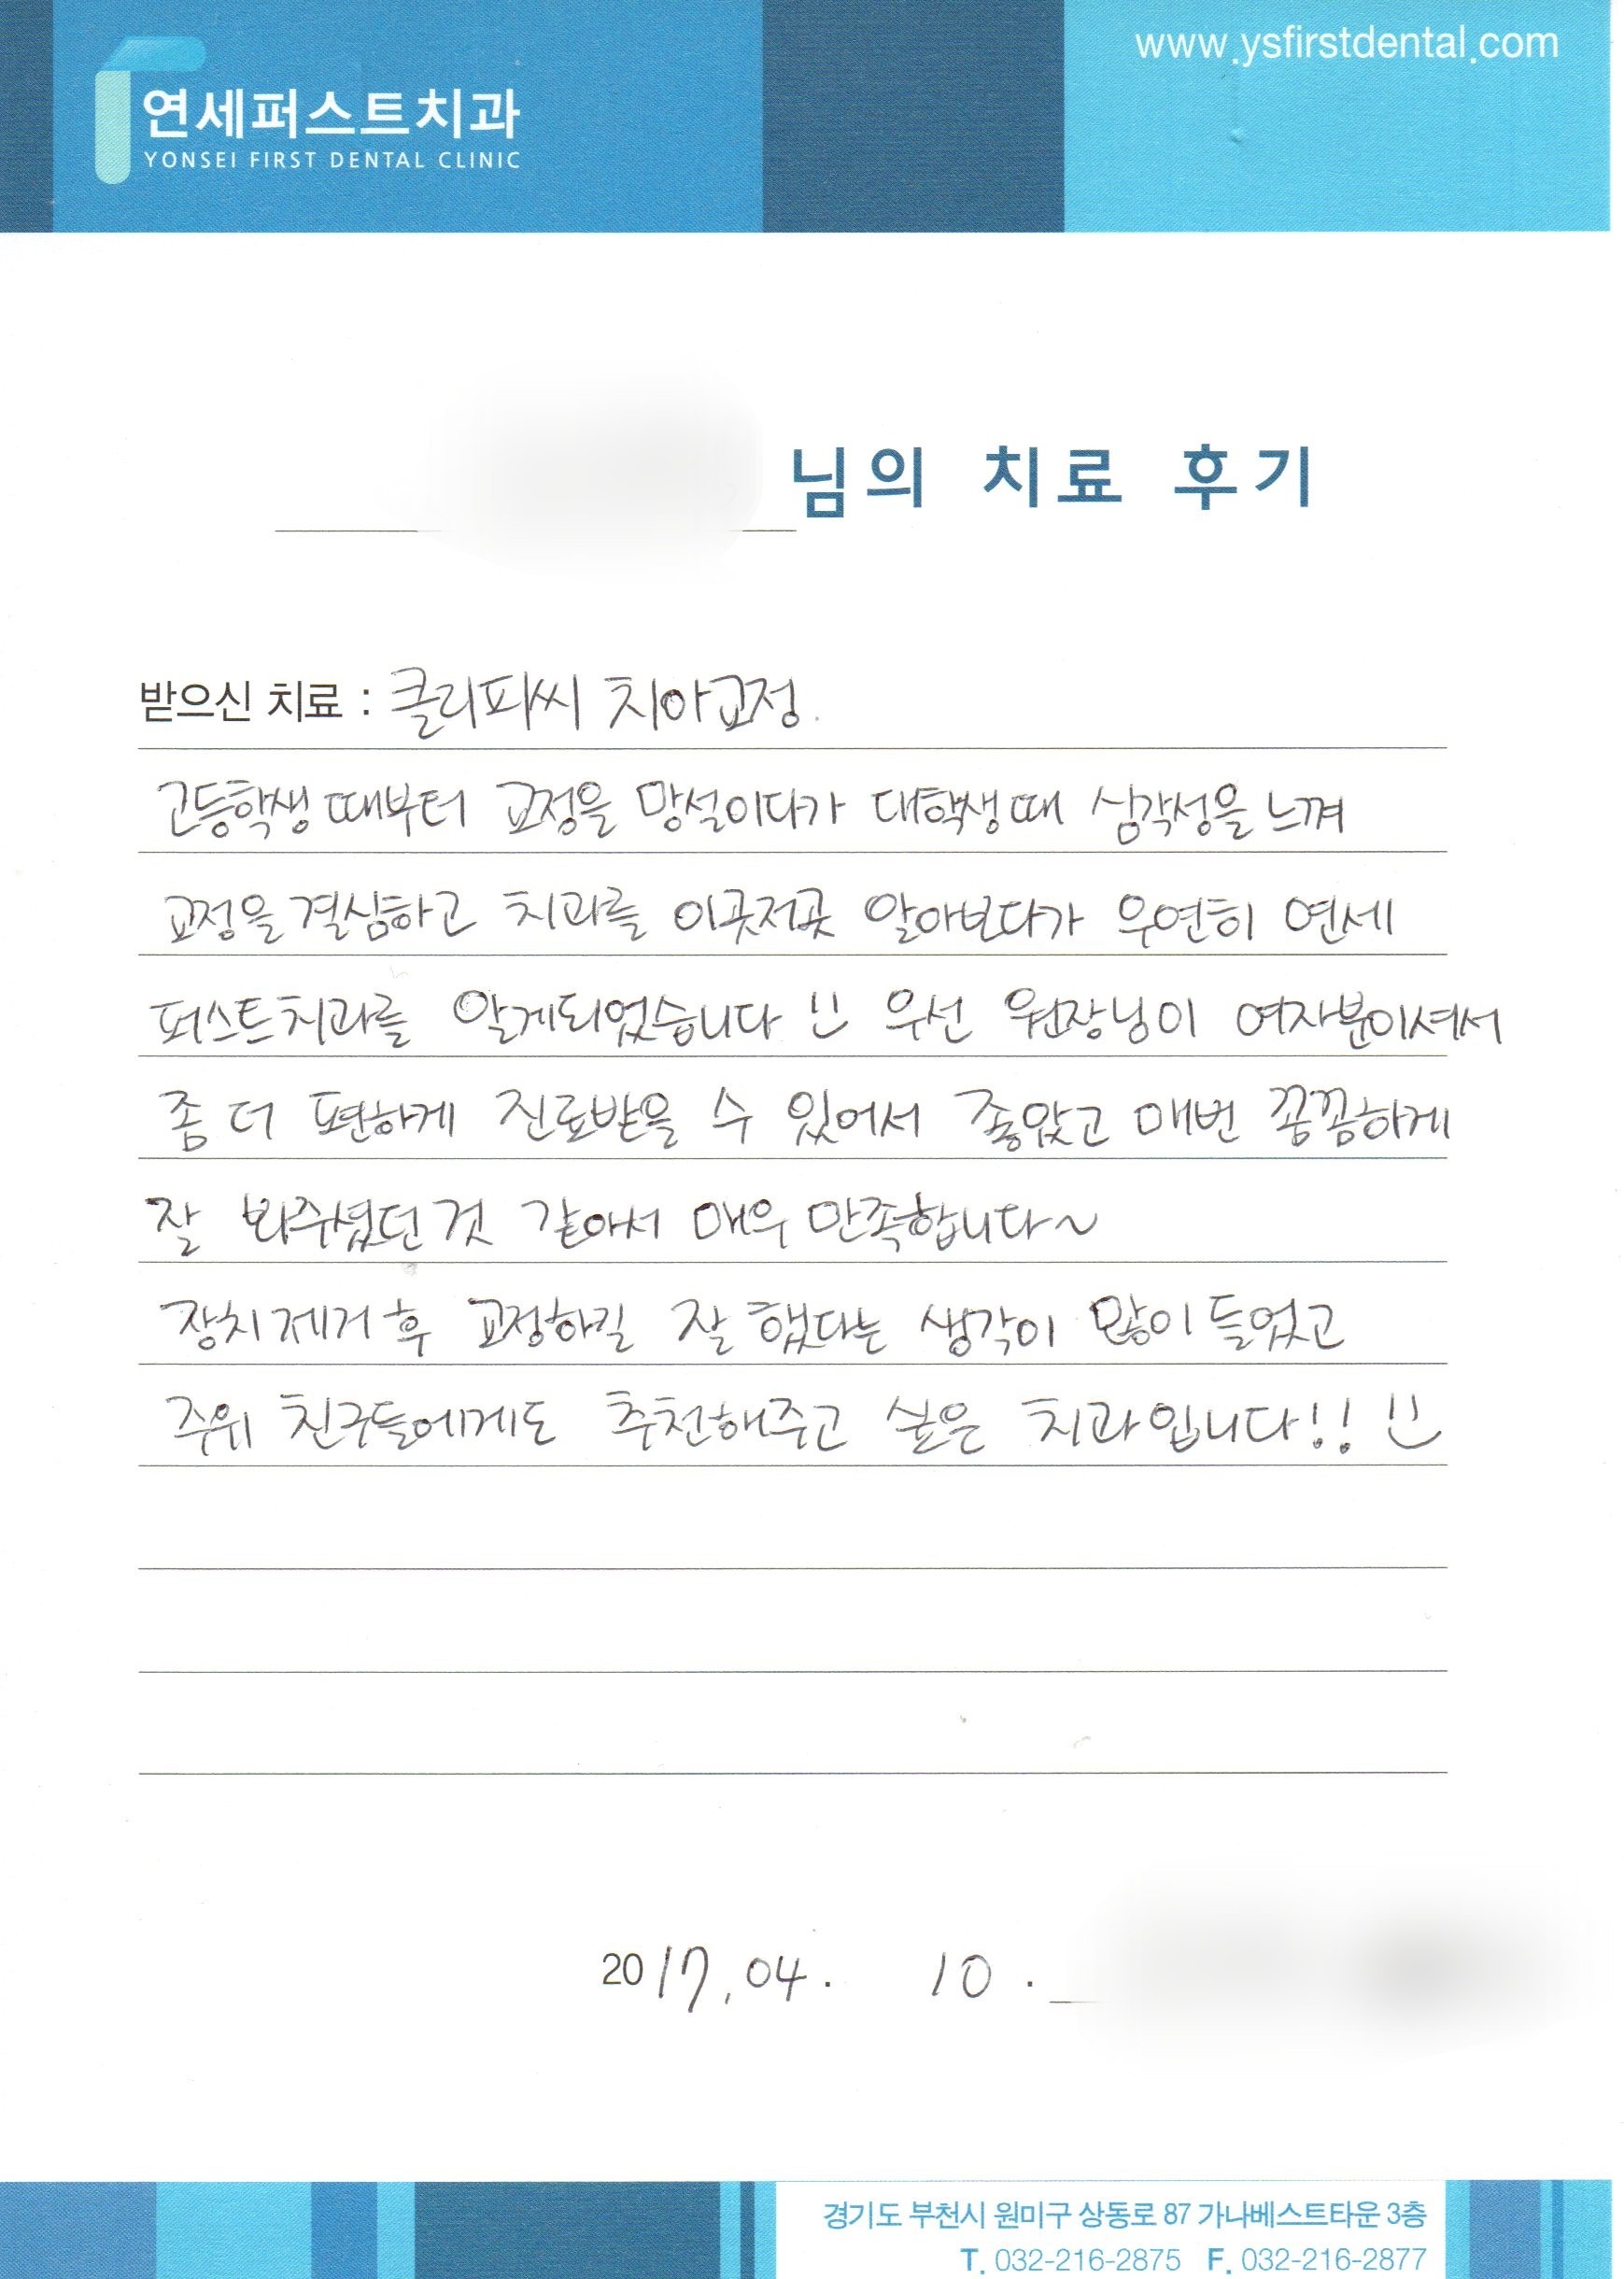 www.ysfirstdental.com
연세퍼스트치과
YONSEI FIRST DENTAL CLINIC
님의 치료 후기
받으신 치료 : 클리피씨 치아교정.
고등학생때부터 교정을 망설이다가 대학생때 심각성을 느껴
교정을 결심하고 치과를 이곳저곳 알아보다가 우연히 연세
퍼스트치과를 알게되었습니다 !! 우선 원장님이 여자분이셔서
좀 더 편하게 진료받을 수 있어서 좋았고 매번 꼼꼼하게
잘 봐주셨던것 같아서 매우 만족합니다~
장치제거 후 교정하길 잘 했다는 생각이 많이 들었고
주위 친구들에게도 추천해주고 싶은 치과입니다!!
2017.04. 10.
경기도 부천시 원미구 상동로 87 가나베스트타운 3층
T. 032-216-2875 F. 032-216-2877